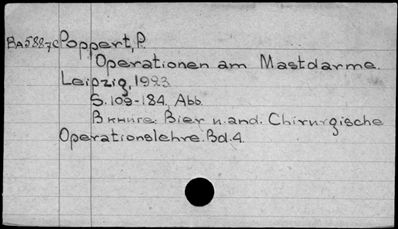 BA5887c Poppert, P.
Operationen am Mastdarme.
Leipzig, 1923
S. 109-184, Abb.
В книге: Bier u. and. Chirurgische
Operationslehre. Bd. 4.